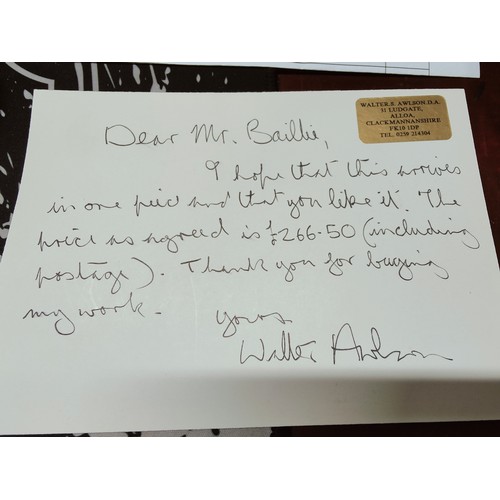 WALTER S. AWLSON. D.A.
31 LUDGATE,
ALLOA,
CLACKMANNANSHIRE
FK10 1DP
TEL. 0259 214304
Dear Mr. Baillie,
I hope that this arrives
in one piece and that you like it. The
price as agreed is £266.50 (including
postage). Thank you for buying
my work.
Yours
Walter Awlson